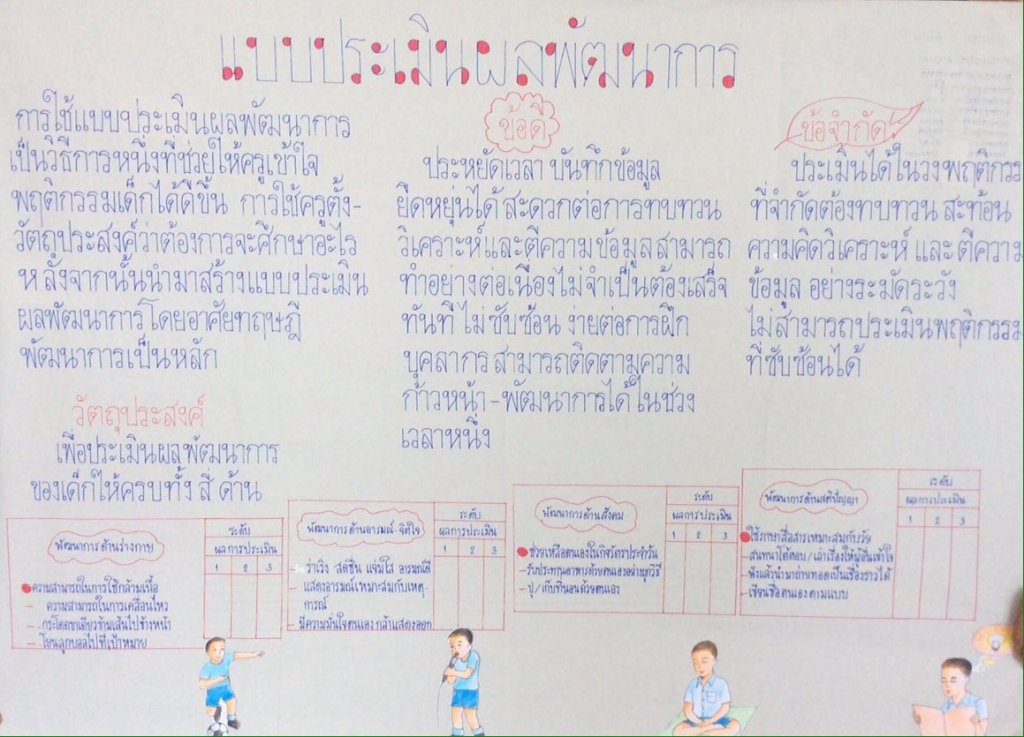 แบบประเมินผลพัฒนาการ
การใช้แบบประเมินผลพัฒนาการ
เป็นวิธีการหนึ่งที่ช่วยให้ครูเข้าใจ
พฤติกรรมเด็กได้ดีขึ้น การใช้ครูตั้ง-
วัตถุประสงค์ว่าต้องการจะศึกษาอะไร
หลังจากนั้นนำมาสร้างแบบประเมิน
ผลพัฒนาการโดยอาศัยทฤษฎี
พัฒนาการเป็นหลัก
วัตถุประสงค์
เพื่อประเมินผลพัฒนาการ
ของเด็กให้ครบทั้ง สี่ ด้าน
ข้อดี
ประหยัดเวลา บันทึกข้อมูล
ยืดหยุ่นได้ สะดวกต่อการทบทวน
วิเคราะห์และตีความข้อมูลสามารถ
ทำอย่างต่อเนื่องไม่จำเป็นต้องเสร็จ
ทันที ไม่ซับซ้อน ง่ายต่อการฝึก
บุคลากร สามารถติดตามความ
ก้าวหน้า-พัฒนาการได้ในช่วง
เวลาหนึ่ง
ข้อจำกัด
ประเมินได้ในวงพฤติกรร
ที่จำกัดต้องทบทวน สะท้อน
ความคิดวิเคราะห์ และตีความ
ข้อมูล อย่างระมัดระวัง
ไม่สามารถประเมินพฤติกรรม
ที่ซับซ้อนได้
พัฒนาการด้านร่างกาย
ระดับ
ผลการประเมิน
1 2 3
ความสามารถในการใช้กล้ามเนื้อ
- ความสามารถในการเคลื่อนไหว
- กระโดดขาเดียวข้ามเส้นไปข้างหน้า
- โยนลูกบอลไปที่เป้าหมาย
พัฒนาการด้านอารมณ์-จิตใจ
ระดับ
ผลการประเมิน
1 2 3
- ร่าเริง สดชื่น แจ่มใส อารมณ์ดี
- แสดงอารมณ์เหมาะสมกับเหตุ-
การณ์
- มีความมั่นใจตนเอง กล้าแสดงออก
พัฒนาการด้านสังคม
ระดับ
ผลการประเมิน
1 2 3
ช่วยเหลือตนเองในกิจวัตรประจำวัน
- รับประทานอาหารด้วยตนเองอย่างถูกวิธี
- ปู/เก็บที่นอนด้วยตนเอง
พัฒนาการด้านสติปัญญา
ระดับ
ผลการประเมิน
1 2 3
ใช้ภาษาสื่อสารเหมาะสมกับวัย
- สนทนาโต้ตอบ/เล่าเรื่องให้ผู้อื่นเข้าใจ
- ฟังแล้วนำมาถ่ายทอดเป็นเรื่องราวได้
- เขียนชื่อตนเองตามแบบ